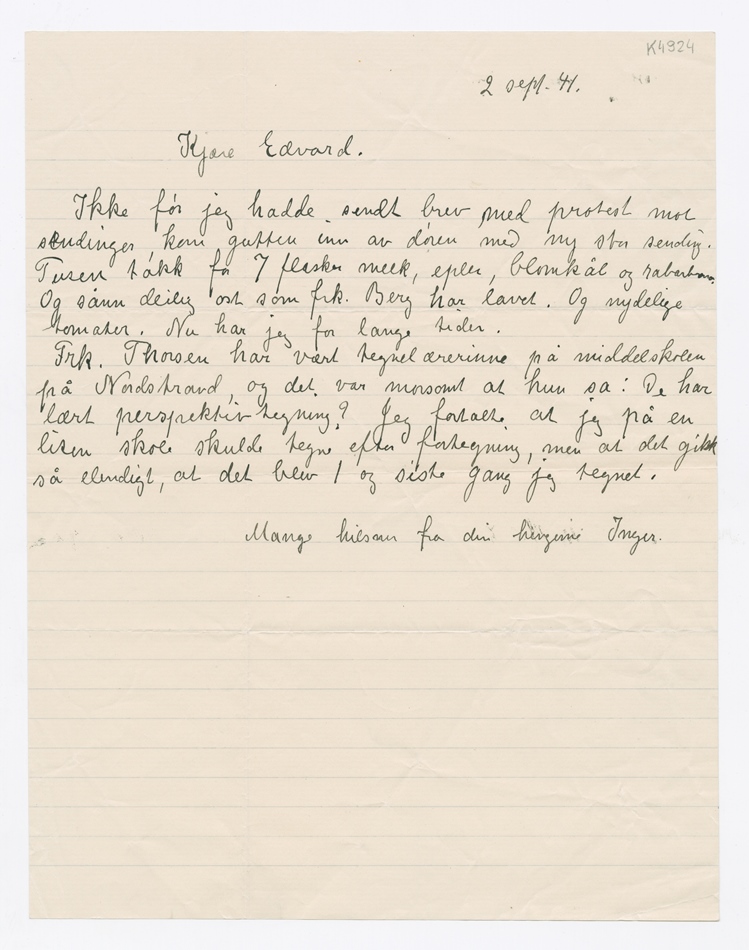 K4924
2 sept. 41.
Kjære Edvard.
Ikke før jeg hadde sendt brev med protest mot
sendinger kom gutten inn av døren med ny stor sending.
Tusen takk for 7 flasker melk, epler, blomkål og rabarbra.
Og sånn deilig ost som frk. Berg har lavet. Og nydelige
tomater. Nu har jeg for lange tider.
Frk. Thorsen har vært tegnelærerinne på middelskolen
på Nordstrand, og det var morsomt at hun sa: De har
lært perspektivtegning? Jeg fortalte at jeg på en
liten skole skulde tegne efter fortegning, men at det gikk
så elendigt, at det blev 1 og siste gang jeg tegnet.
Mange hilsner fra din hengivne Inger.